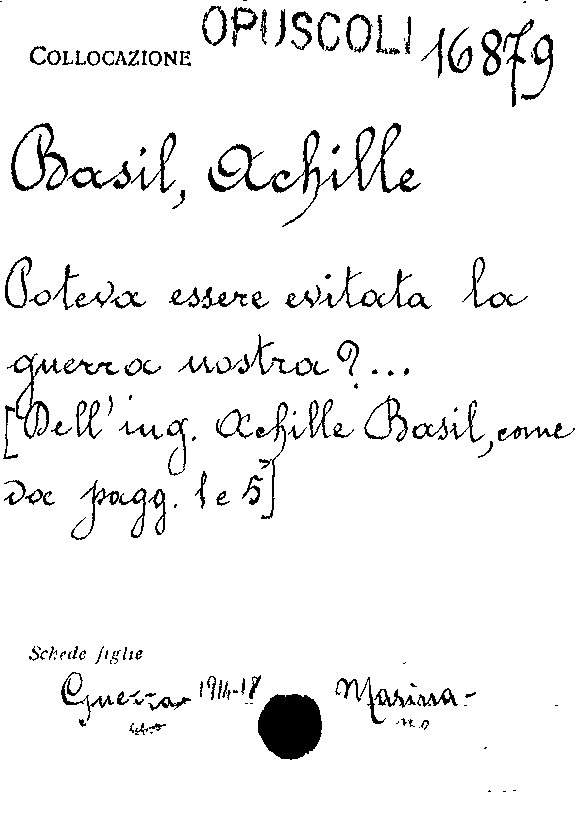 COLLOCAZIONE OPUSCOLI 16879
Basil, Achille
Poteva essere evitata la
guerra nostra?...
[Dell'ing. Achille Basil, come
da pagg. 1 e 5]
Schede figlie
Guerra 1914-18 Marina -